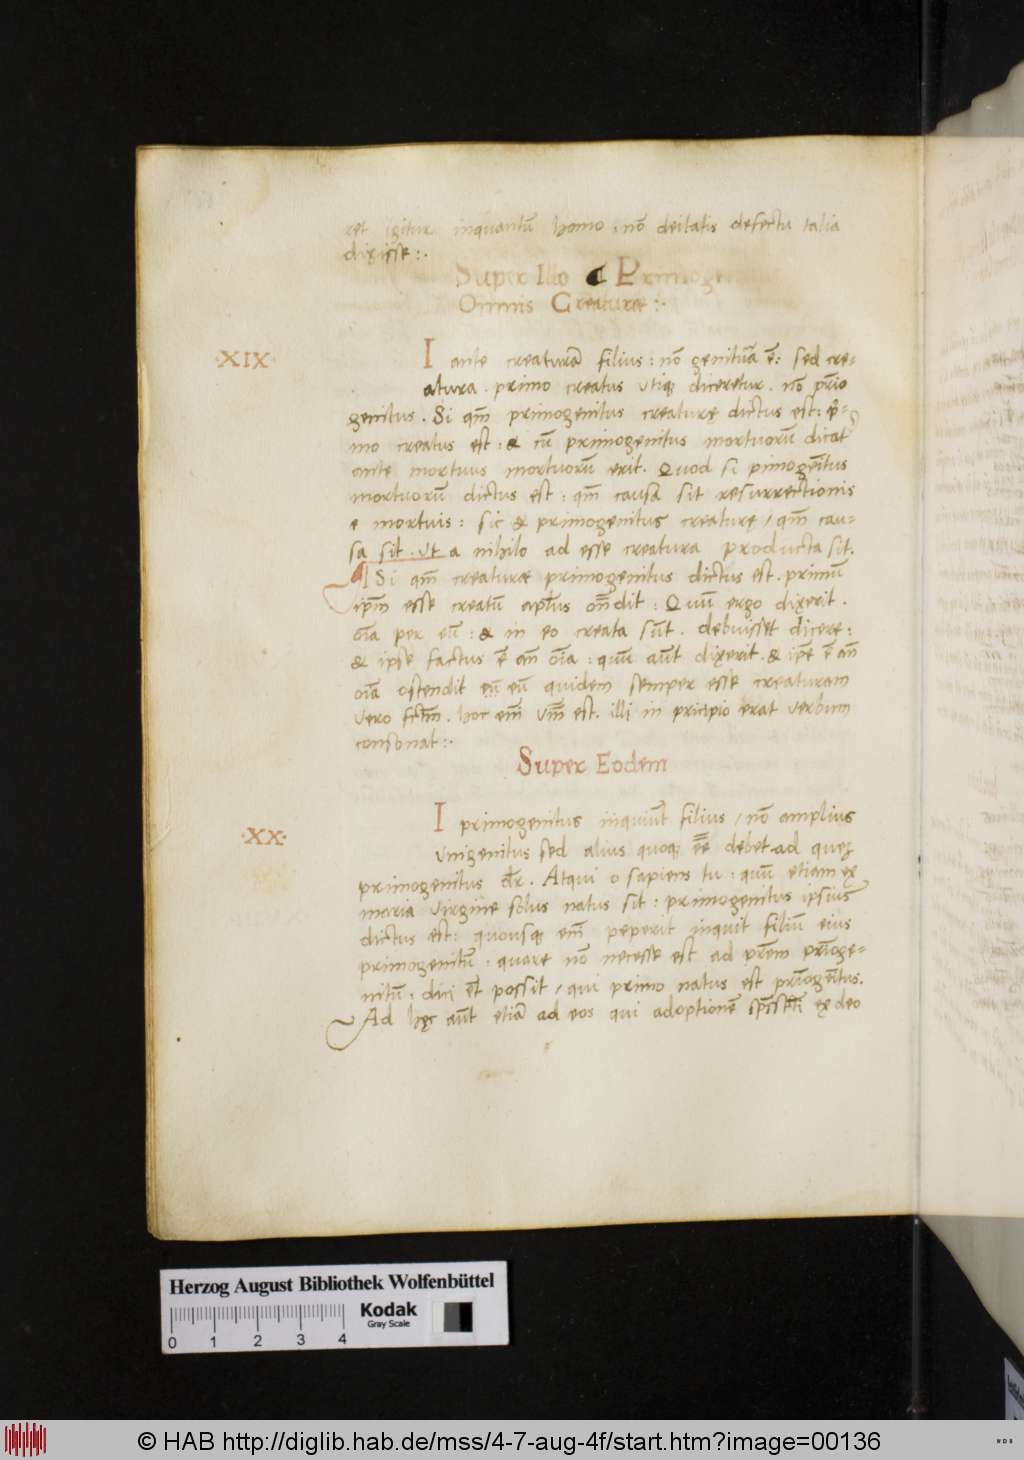 ret igitur inquantū homo . nō deitatis defectu talia
dixisse :.
Super Illo Primoge
Omnis Creaturæ :.
·XIX·
I ante creaturā filius : nō genitura ē : sed cre-
atura . primo creatus utiq; diceretur . nō prīo
genitus . Si qm̄ primogenitus creaturę dictus est : p̄i-
mo creatus est : & cū primogenitus mortuorū dicat
ante mortuus mortuorū erit . Quod si pimogēitus
mortuorū dictus est : qm̄ causa sit resurrectionis
e mortuis : sic & primogenitus creaturę / qm̄ cau-
sa sit . ut a nihilo ad esse creatura producta sit .
Si qm̄ creaturæ primogenitus dictus est . primū
ip̄m esse creatū ap̄lus on̄dit : Quū ergo dixerit .
oīa per eū : & in eo creata sūt . debuisset dicere :
& ipse factus ē an̄ oīa : quū aūt dixerit . & ip̄e ē an̄
oīa ostendit eū quidem semper esse creaturam
vero fctm̄ . hoc em̄ um̄ est . illi in pricipio erat verbum
consonat :.
Super Eodem
·XX·
I primogenitus inquiūt filius / nō amplius
unigenitus sed alius quoq; ēē debet ad quez
primogenitus dr̄ . Atqui o sapiens tu : quū etiam ex
maria virgine solus natus sit : primogenitus ipsius
dictus est : quousq; em̄ peperit inquit filiū eius
primogenitū : quare nō necesse est ad prēm prīoge-
nitū . dici ēt possit / qui primo natus est prīogēitus .
Ad hęc aūt etiā ad eos qui adoptionē ex deo
Herzog August Bibliothek Wolfenbüttel
Kodak
Gray Scale
0 1 2 3 4
© HAB http://diglib.hab.de/mss/4-7-aug-4f/start.htm?image=00136